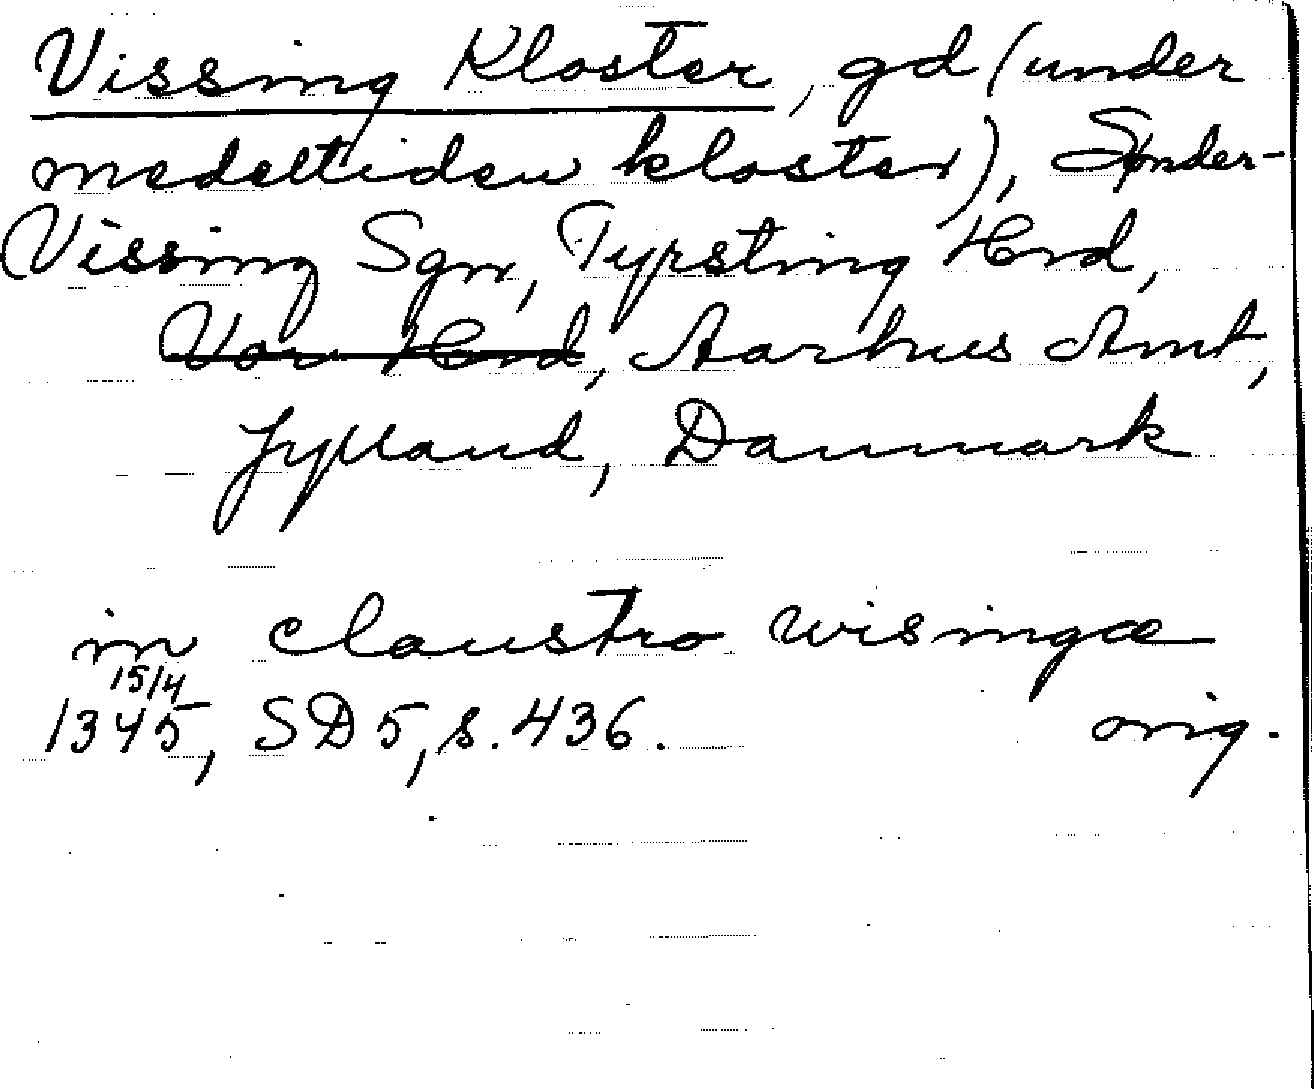 Vissing Kloster, gd (under
medeltiden kloster), Sønder-
Vissing Sgn, Tyrsting Hrd,
Vor Hrd, Aarhus Amt,
Jylland, Danmark
in claustro wisingæ
15/4
1345, SD 5, s. 436. orig.